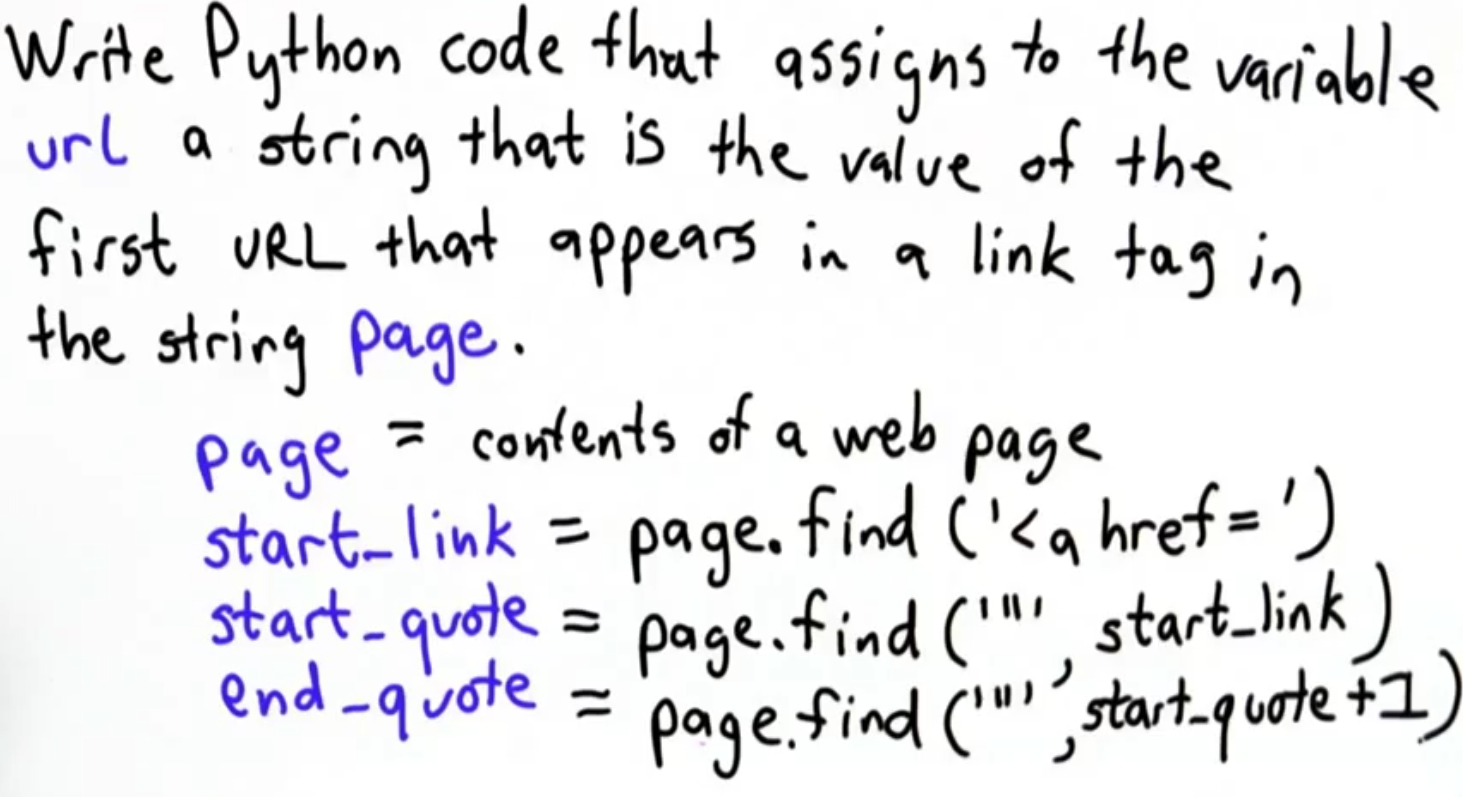 Write Python code that assigns to the variable
url a string that is the value of the
first URL that appears in a link tag in
the string page.
page = contents of a web page
start_link = page.find ('<a href=')
start_quote = page.find ('"', start_link)
end_quote = page.find ('"', start_quote+1)